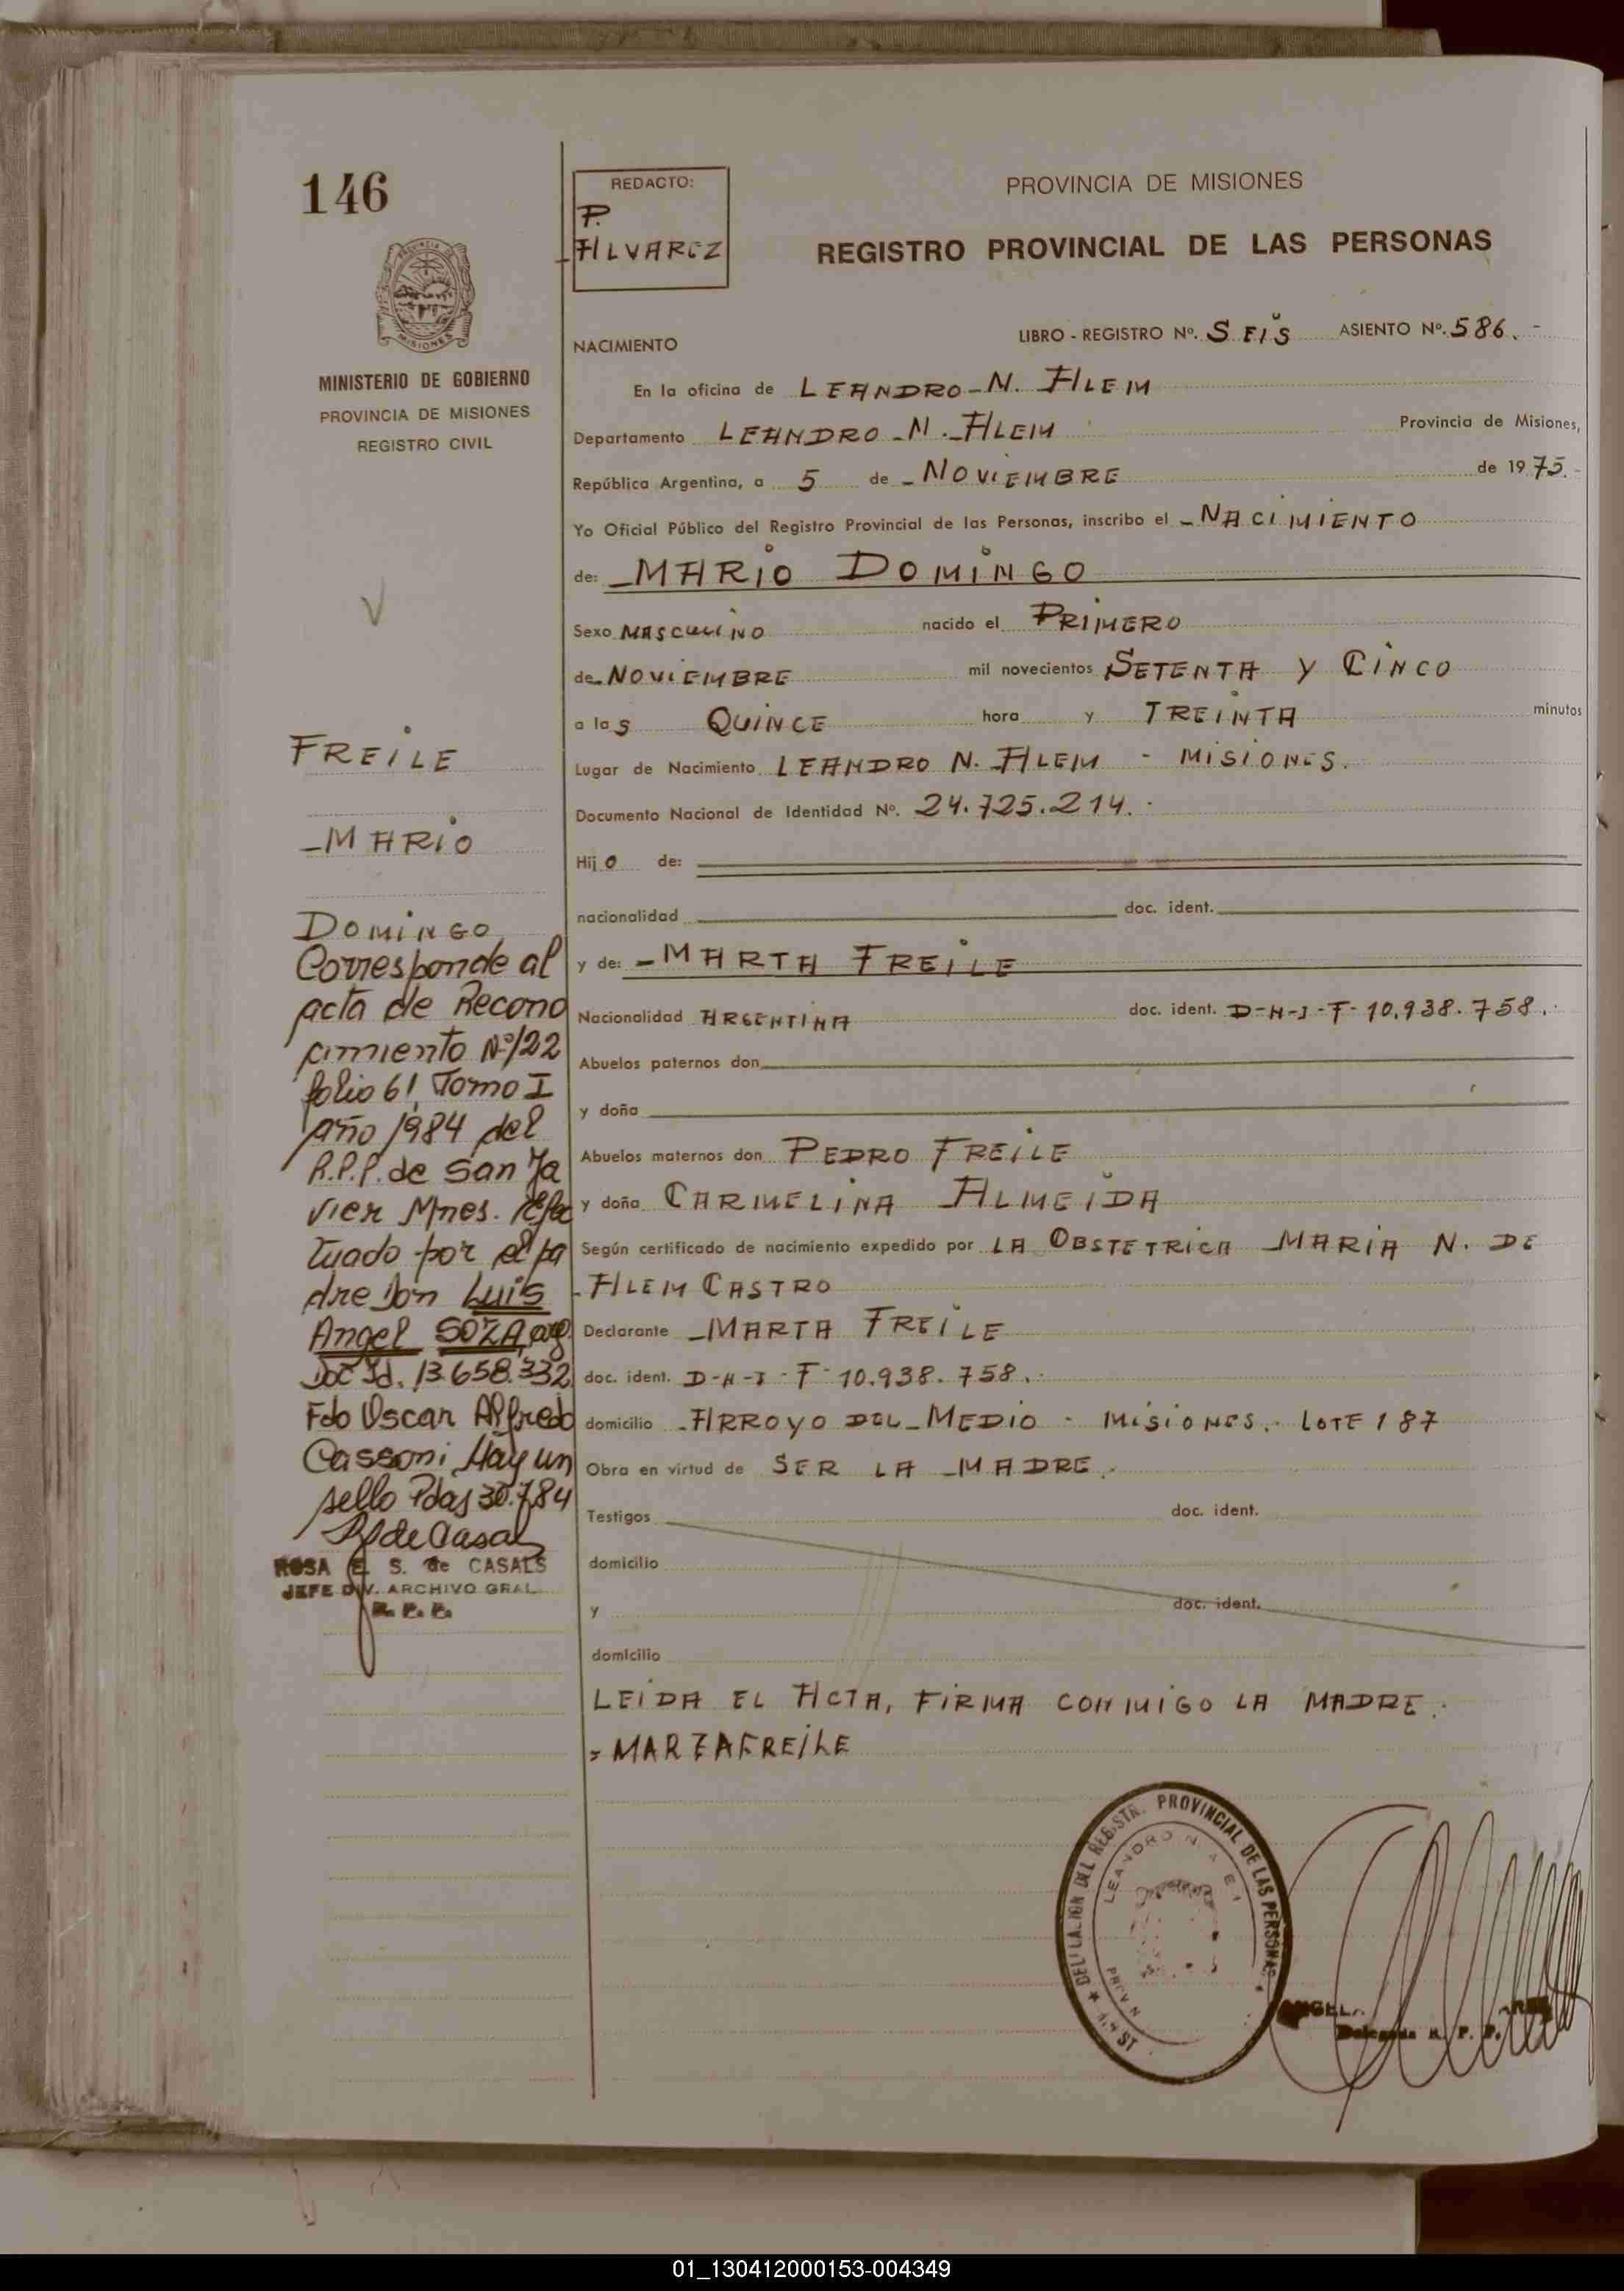 146
REDACTO:
P.
ALVAREZ
PROVINCIA DE MISIONES
REGISTRO PROVINCIAL DE LAS PERSONAS
MISIONES
MINISTERIO DE GOBIERNO
PROVINCIA DE MISIONES
REGISTRO CIVIL
NACIMIENTO
LIBRO - REGISTRO Nº. SEIS ASIENTO Nº. 586.-
En la oficina de LEANDRO N. ALEM
Departamento LEANDRO N. ALEM Provincia de Misiones,
República Argentina, a 5 de NOVIEMBRE de 1975.-
Yo Oficial Público del Registro Provincial de las Personas, inscribo el NACIMIENTO
de: MARIO DOMINGO
Sexo MASCULINO nacido el PRIMERO
de NOVIEMBRE mil novecientos SETENTA Y CINCO
a las QUINCE hora y TREINTA minutos
Lugar de Nacimiento LEANDRO N. ALEM - MISIONES.
Documento Nacional de Identidad Nº. 24.725.214.-
Hijo de:
nacionalidad doc. ident.
y de: MARTA FREILE
Nacionalidad ARGENTINA doc. ident. D-N-I-F-10.938.758.-
Abuelos paternos don
y doña
Abuelos maternos don PEDRO FREILE
y doña CARMELINA ALMEIDA
Según certificado de nacimiento expedido por LA OBSTETRICA MARIA N. DE
ALEM CASTRO
Declarante MARTA FREILE
doc. ident. D-N-I-F-10.938.758.-
domicilio ARROYO DEL MEDIO - MISIONES.- LOTE 187
Obra en virtud de SER LA MADRE.-
Testigos doc. ident.
domicilio
y doc. ident.
domicilio
LEIDA EL ACTA, FIRMA CONMIGO LA MADRE.-
= MARTA FREILE
FREILE
MARIO
DOMINGO
Corresponde al
acta de Recono
cimiento Nº122
folio 61 Tomo I
año 1984 del
R.P.P. de San Ja
vier Mnes. Efec
tuado por el pa
dre Don Luis
Angel SOZA, arg.
Doc Id. 13.658.332
Fdo Oscar Alfredo
Cassoni Hay un
sello Pdas 30.7.84
R S de Casals
ROSA E. S. de CASALS
JEFE DIV. ARCHIVO GRAL.
R. P. P.
PROVINCIAL DE LAS PERSONAS
LEANDRO N.
ANGEL
Delegada R. P. P.
01_130412000153-004349